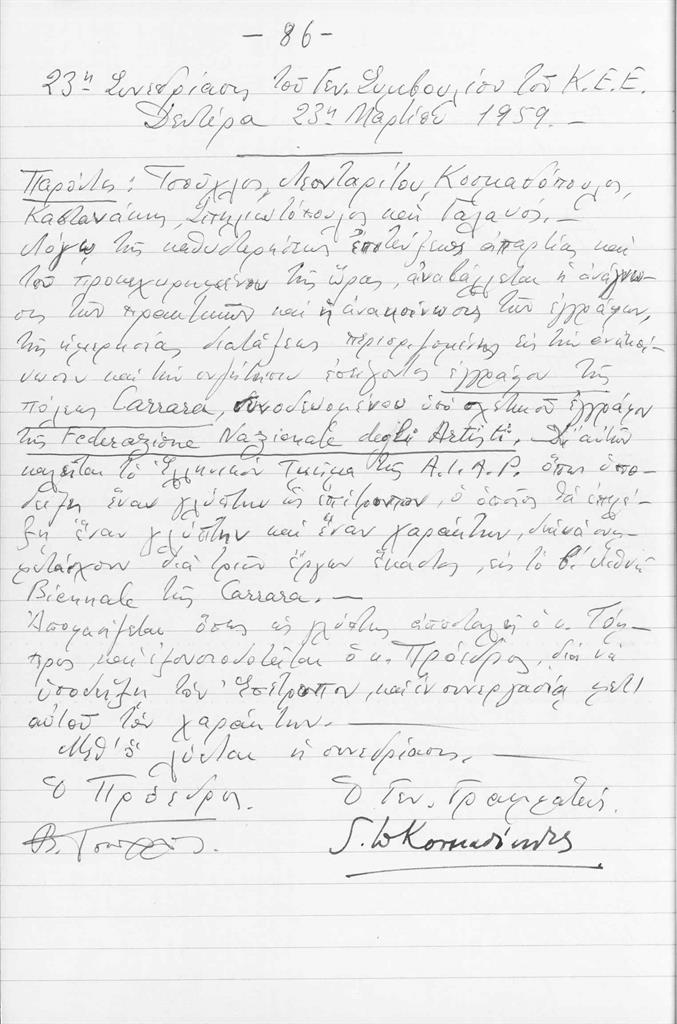 - 86 -
23η Συνεδρίασις τοῦ Γεν. Συμβουλίου τοῦ Κ.Ε.Ε.
Δευτέρα 23η Μαρτίου 1959. -
Παρόντες: Τσούχλος, Λεονταρίτου, Κοσμαδόπουλος,
Καστανάκης, Σπηλιωτόπουλος καὶ Γαλανός. -
Λόγω τῆς καθυστερήσεως ἐπιτεύξεως ἀπαρτίας καὶ
τοῦ προκεχωρημένου τῆς ὥρας, ἀναβάλλεται ἡ ἀνάγνω-
σις τῶν πρακτικῶν καὶ ἡ ἀνακοίνωσις τῶν ἐγγράφων,
τῆς ἡμερησίας διατάξεως περιοριζομένης εἰς τὴν ἀνακοί-
νωσιν καὶ τὴν συζήτησιν ἐπείγοντος ἐγγράφου τῆς
πόλεως Carrara, συνοδευομένου ὑπὸ σχετικοῦ ἐγγράφου
τῆς Federazione Nazionale degli Artisti. Δι' αὐτῶν
καλεῖται τὸ Ἑλληνικὸν Τμῆμα τῆς A.I.A.P. ὅπως ὑπο-
δείξη ἕναν γλύπτην ὡς ἐπίτροπον, ὁ ὁποῖος θὰ ἐπιλέ-
ξη ἕναν γλύπτην καὶ ἕναν χαράκτην, διὰ νὰ συμ-
μετάσχουν διὰ τριῶν ἔργων ἕκαστος, εἰς τὸ β' διεθνῆ
Biennale τῆς Carrara. -
Ἀποφασίζεται ὅπως ὡς γλύπτης ἀποσταλῆ ὁ κ. Τόμ-
προς, καὶ ἐξουσιοδοτεῖται ὁ κ. Πρόεδρος, διὰ νὰ
ὑποδείξη τὸν Ἐπίτροπον, καὶ ἐν συνεργασίᾳ μετ'
αὐτοῦ τὸν χαράκτην. -
Μεθ' ὃ λύεται ἡ συνεδρίασις. -
Ὁ Πρόεδρος. Ὁ Γεν. Γραμματεύς.